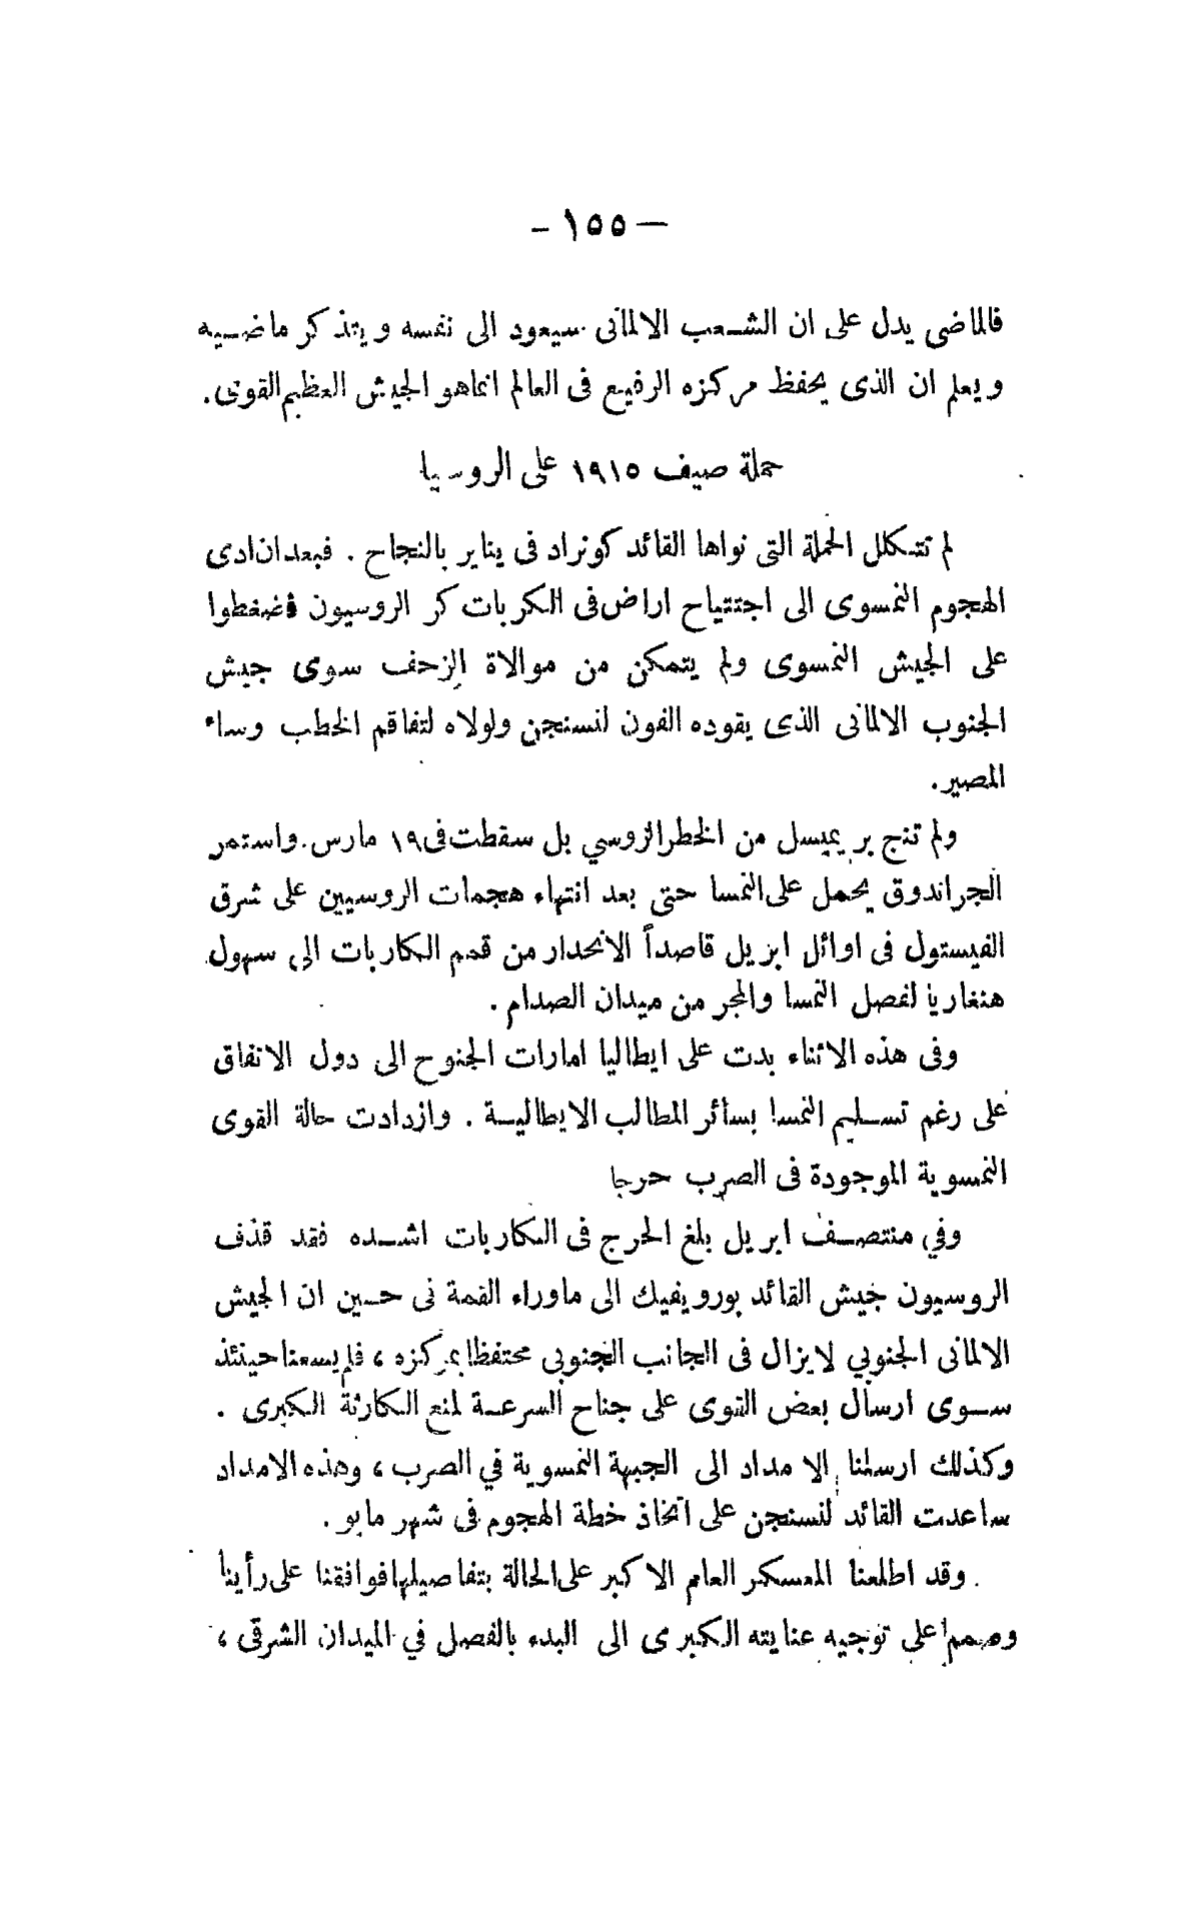 — ١٥٥ –
فالماضى يدل على ان الشعب الالمانى سيعود الى نفسه ويتذكر ماضيه
ويعلم ان الذى يحفظ مركزه الرفيع فى العالم انماهو الجيش العظيم القوى.
حملة صيف ١٩١٥ على الروسيا
لم تتكلل الحملة التى نواها القائد كونراد فى يناير بالنجاح . فبعد ان ادى
الهجوم النمسوى الى اجتتياح اراض فى الكربات كر الروسيون فضغطوا
على الجيش النمسوى ولم يتمكن من موالاة الزحف سوى جيش
الجنوب الالمانى الذى يقوده الفون لنسنجن ولولاه لتفاقم الخطب وساء
المصير.
ولم تنج بريميسل من الخطر الروسي بل سقطت فى ١٩ مارس. واستمر
الجراندوق يحمل على النمسا حتى بعد انتهاء هجمات الروسيين على شرق
الفيستول فى اوائل ابريل قاصداً الانحدار من قمم الكاربات الى سهول
هنغاريا لفصل النمسا والمجر من ميدان الصدام .
وفى هذه الاثناء بدت على ايطاليا امارات الجنوح الى دول الاتفاق
على رغم تسليم النمسا بسائر المطالب الايطالية . وازدادت حالة القوى
النمسوية الموجودة فى الصرب حرجا
وفي منتصف ابريل بلغ الحرج فى الكاربات اشده فقد قذف
الروسيون جيش القائد بورويفيك الى ماوراء القمة فى حين ان الجيش
الالمانى الجنوبي لايزال فى الجانب الجنوبى محتفظا بمركزه ، فلم يسعنا حينئذ
سوى ارسال بعض القوى على جناح السرعة لمنع الكارثة الكبرى .
وكذلك ارسلنا الامداد الى الجبهة النمسوية في الصرب ، وهذه الامداد
ساعدت القائد لنسنجن على اتخاذ خطة الهجوم فى شهر مايو .
وقد اطلعنا المعسكر العام الاكبر على الحالة بتفاصيلها فوافقنا على رأينا
وصمم على توجيه عنايته الكبرى الى البدء بالفصل في الميدان الشرقى ،